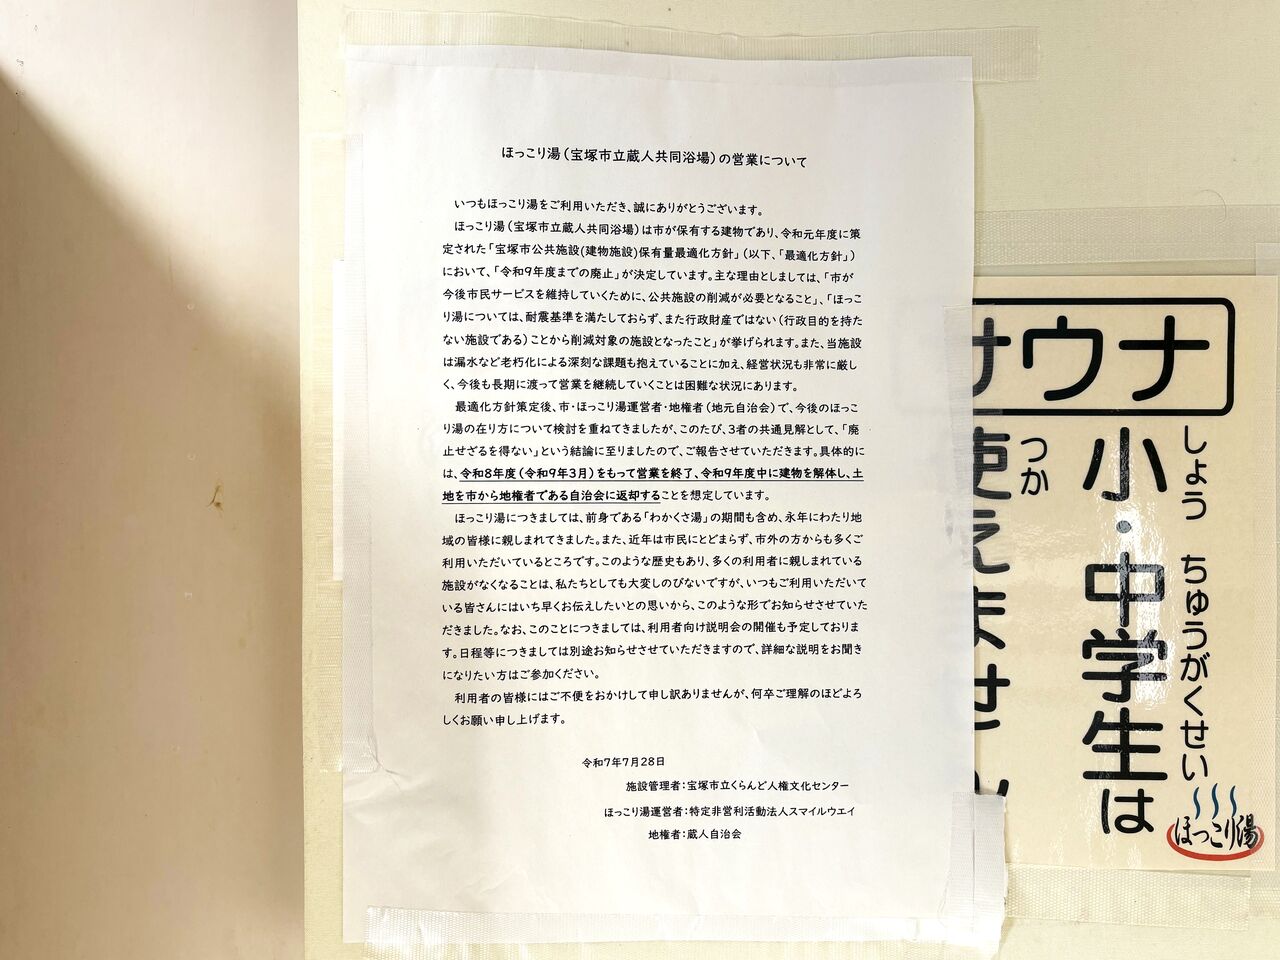 ほっこり湯（宝塚市立蔵人共同浴場）の営業について
いつもほっこり湯をご利用いただき、誠にありがとうございます。
ほっこり湯（宝塚市立蔵人共同浴場）は市が保有する建物であり、令和元年度に策
定された「宝塚市公共施設(建物施設)保有量最適化方針」（以下、「最適化方針」）
において、「令和9年度までの廃止」が決定しています。主な理由としましては、「市が
今後市民サービスを維持していくために、公共施設の削減が必要となること」、「ほっこ
り湯については、耐震基準を満たしておらず、また行政財産ではない（行政目的を持た
ない施設である）ことから削減対象の施設となったこと」が挙げられます。また、当施設
は漏水など老朽化による深刻な課題も抱えていることに加え、経営状況も非常に厳し
く、今後も長期に渡って営業を継続していくことは困難な状況にあります。
最適化方針策定後、市・ほっこり湯運営者・地権者（地元自治会）で、今後のほっこ
り湯の在り方について検討を重ねてきましたが、このたび、3者の共通見解として、「廃
止せざるを得ない」という結論に至りましたので、ご報告させていただきます。具体的に
は、令和8年度（令和9年3月）をもって営業を終了、令和9年度中に建物を解体し、土
地を市から地権者である自治会に返却することを想定しています。
ほっこり湯につきましては、前身である「わかくさ湯」の期間も含め、永年にわたり地
域の皆様に親しまれてきました。また、近年は市民にとどまらず、市外の方からも多くご
利用いただいているところです。このような歴史もあり、多くの利用者に親しまれている
施設がなくなることは、私たちとしても大変しのびないですが、いつもご利用いただいて
いる皆さんにはいち早くお伝えしたいとの思いから、このような形でお知らせさせていた
だきました。なお、このことにつきましては、利用者向け説明会の開催も予定しておりま
す。日程等につきましては別途お知らせさせていただきますので、詳細な説明をお聞き
になりたい方はご参加ください。
利用者の皆様にはご不便をおかけして申し訳ありませんが、何卒ご理解のほどよろ
しくお願い申し上げます。
令和7年7月28日
施設管理者：宝塚市立くらんど人権文化センター
ほっこり湯運営者：特定非営利活動法人スマイルウエイ
地権者：蔵人自治会
サウナ
しょう ちゅうがくせい
小・中学生は
つか
使えません
ほっこり湯